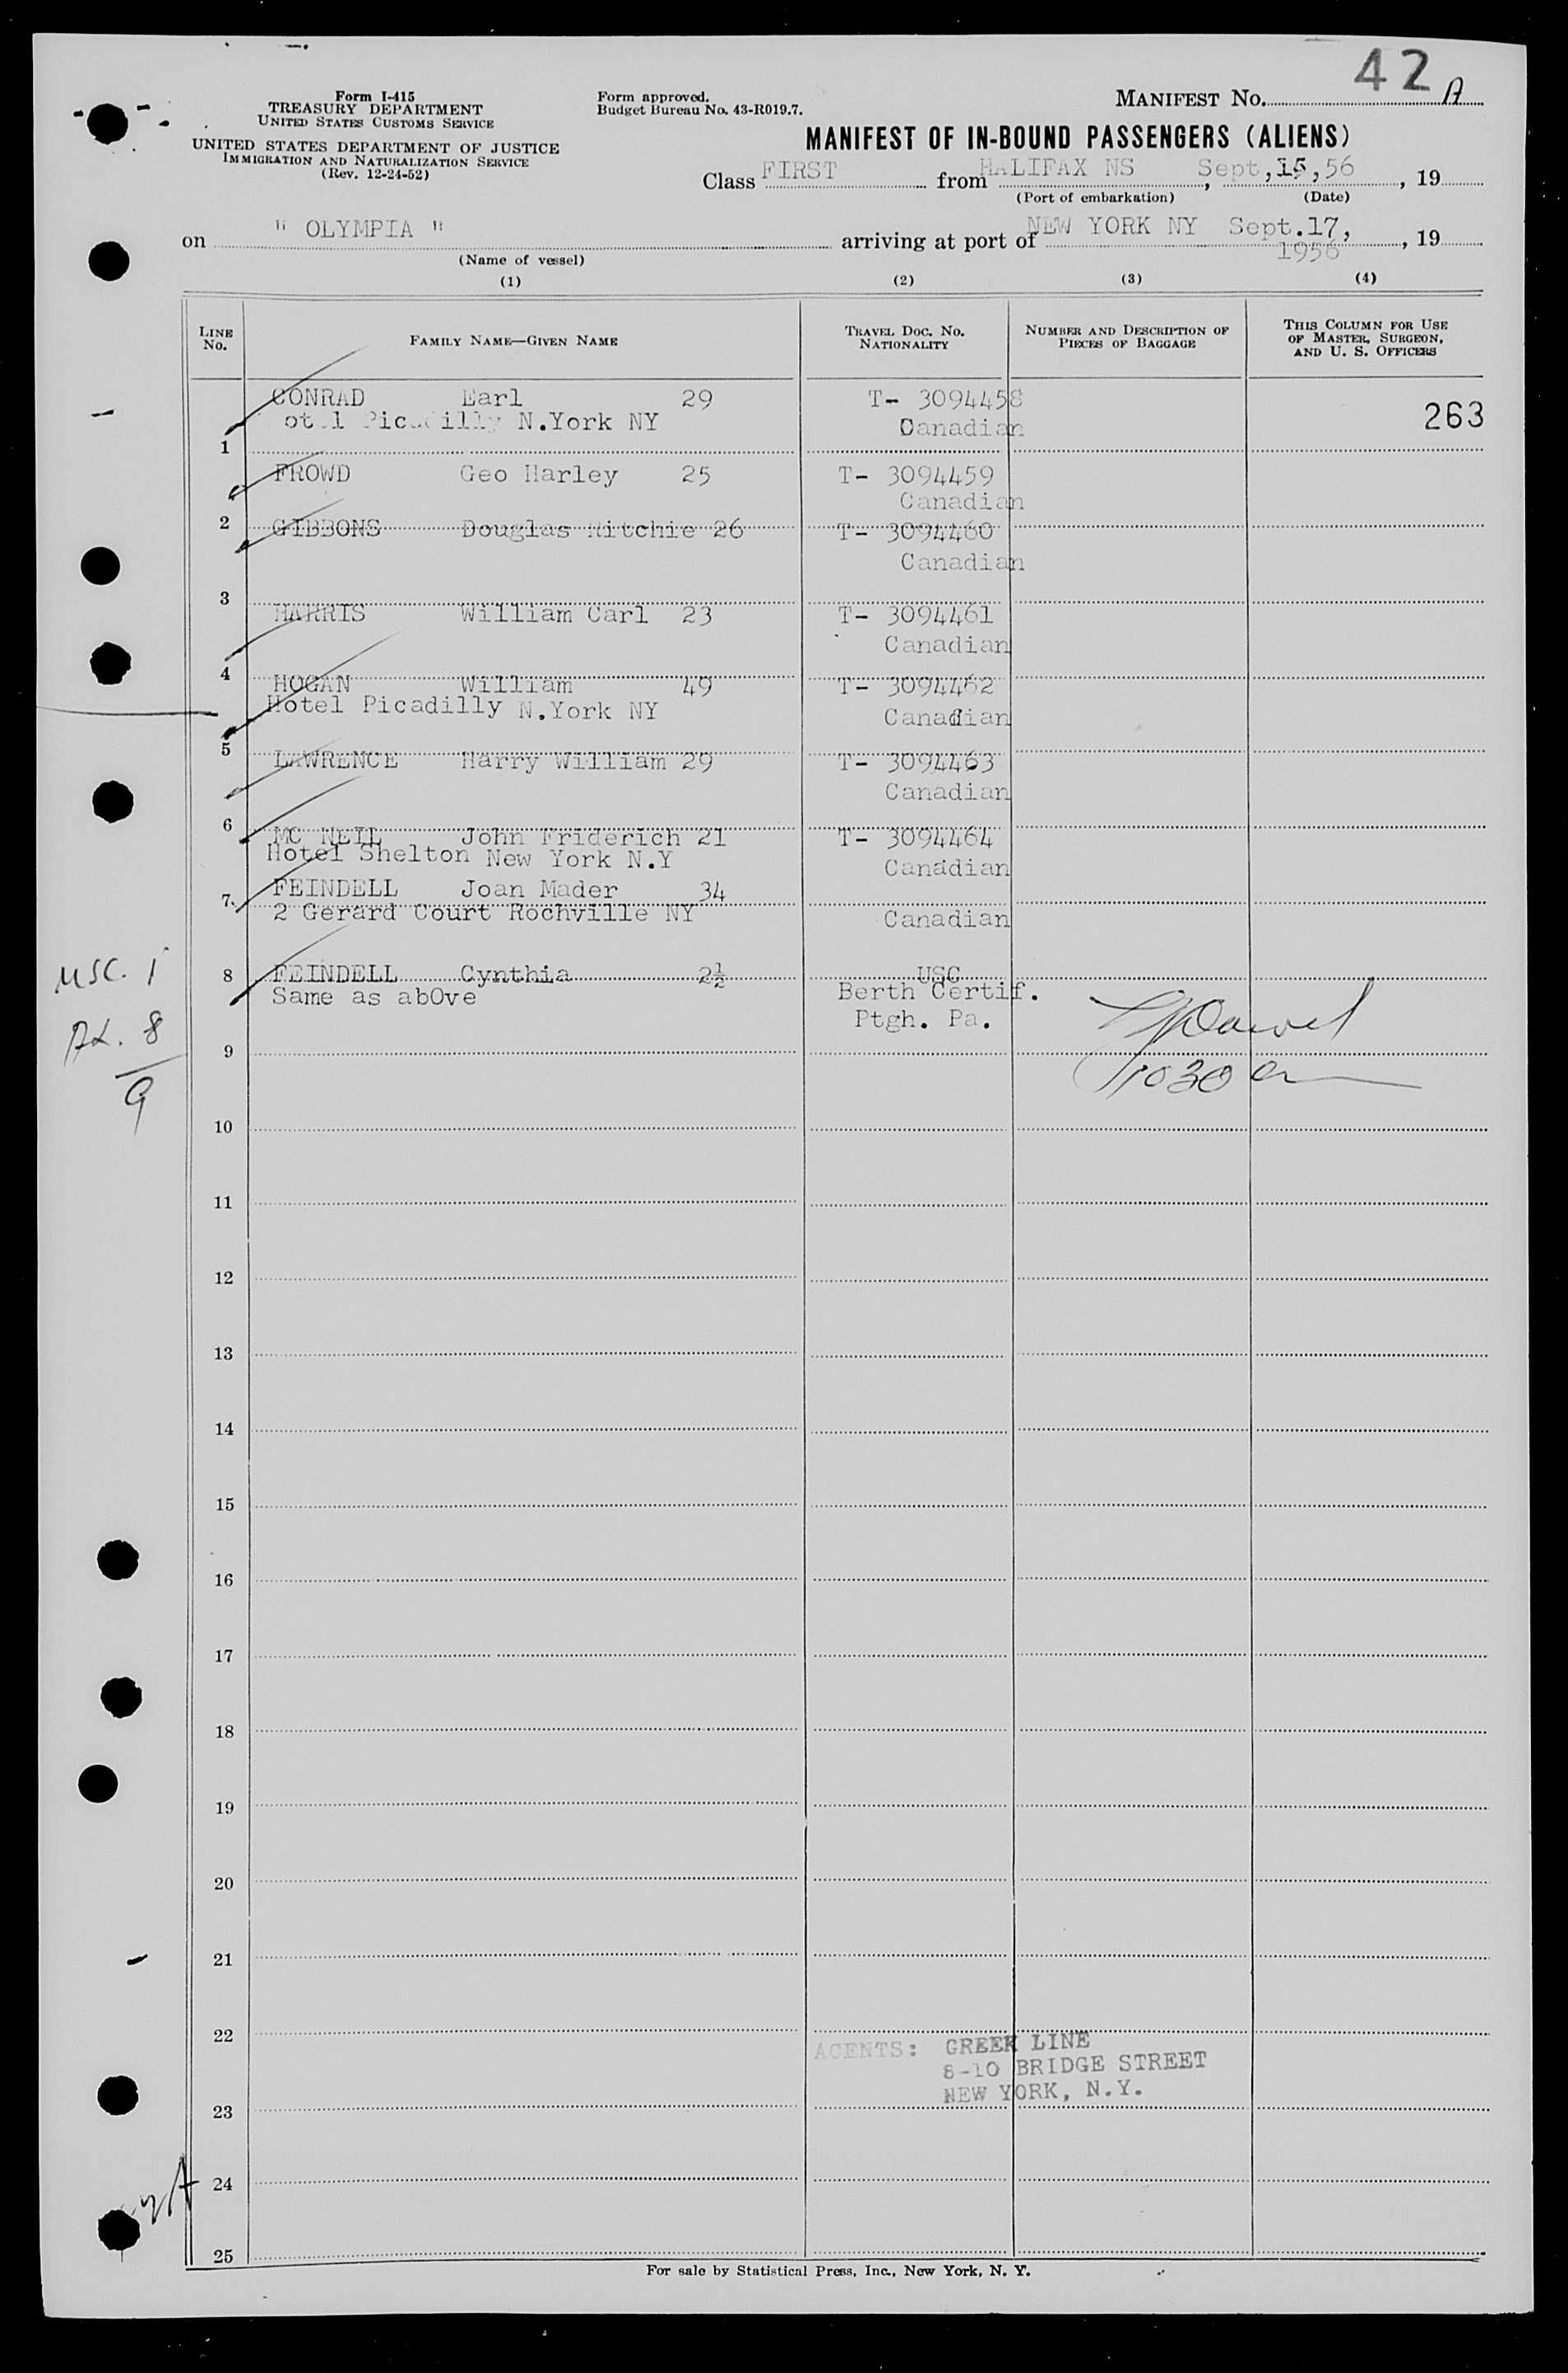 42 A
Form I-415
TREASURY DEPARTMENT
UNITED STATES CUSTOMS SERVICE
UNITED STATES DEPARTMENT OF JUSTICE
IMMIGRATION AND NATURALIZATION SERVICE
(Rev. 12-24-52)
Form approved.
Budget Bureau No. 43-R019.7.
MANIFEST No.
MANIFEST OF IN-BOUND PASSENGERS (ALIENS)
Class FIRST from HALIFAX NS, Sept,15,56, 19
(Port of embarkation) (Date)
on " OLYMPIA " arriving at port of NEW YORK NY Sept.17, 1956, 19
(Name of vessel)
(1) (2) (3) (4)
LINE No. FAMILY NAME—GIVEN NAME TRAVEL DOC. NO. NATIONALITY NUMBER AND DESCRIPTION OF PIECES OF BAGGAGE THIS COLUMN FOR USE OF MASTER, SURGEON, AND U. S. OFFICERS
CONRAD Earl 29 T- 3094458
otel Picadilly N.York NY Canadian 263
1
FROWD Geo Harley 25 T- 3094459
Canadian
2 GIBBONS Douglas Ritchie 26 T- 3094460
Canadian
3
HARRIS William Carl 23 T- 3094461
Canadian
4
HOGAN William 49 T- 3094462
Hotel Picadilly N.York NY Canadian
5
LAWRENCE Harry William 29 T- 3094463
Canadian
6
MC NEIL John Friderich 21 T- 3094464
Hotel Shelton New York N.Y Canadian
FEINDELL Joan Mader 34
7
2 Gerard Court Rochville NY Canadian
USC. 1
8 FEINDELL Cynthia 2½ USC
Same as abOve Berth Certif.
Ptgh. Pa.
AL. 8
9
9
1030 a
10
11
12
13
14
15
16
17
18
19
20
21
22
AGENTS: GREEK LINE
8-10 BRIDGE STREET
NEW YORK, N.Y.
23
24
25
For sale by Statistical Press, Inc., New York, N. Y.